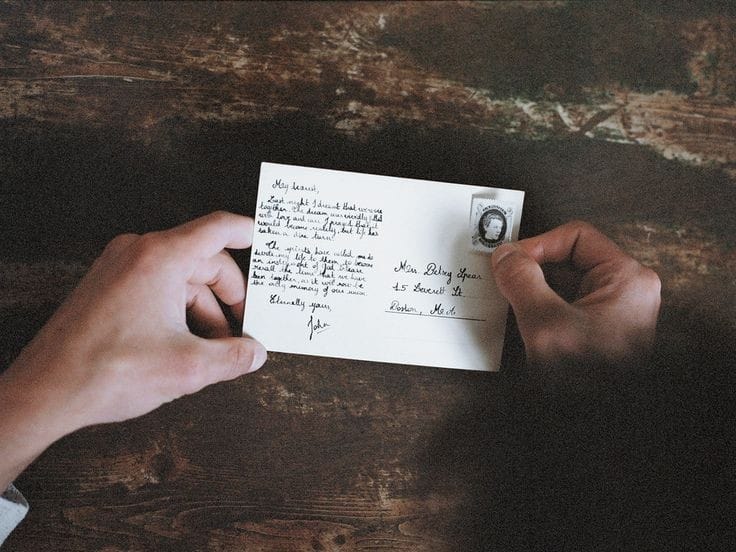 Last night I dreamt that we were
together. The dream was vividly filled
with love and awe. I prayed that it
would become reality, but life has
taken a dire turn.
The spirits have called me to
devote my life to them, to become
an instrument of God. Please
recall the love that we have
been together, as it will now be
the only memory of our union.
Eternally yours,
John
Miss Betsey Spear
15 Leverett St.
Boston,